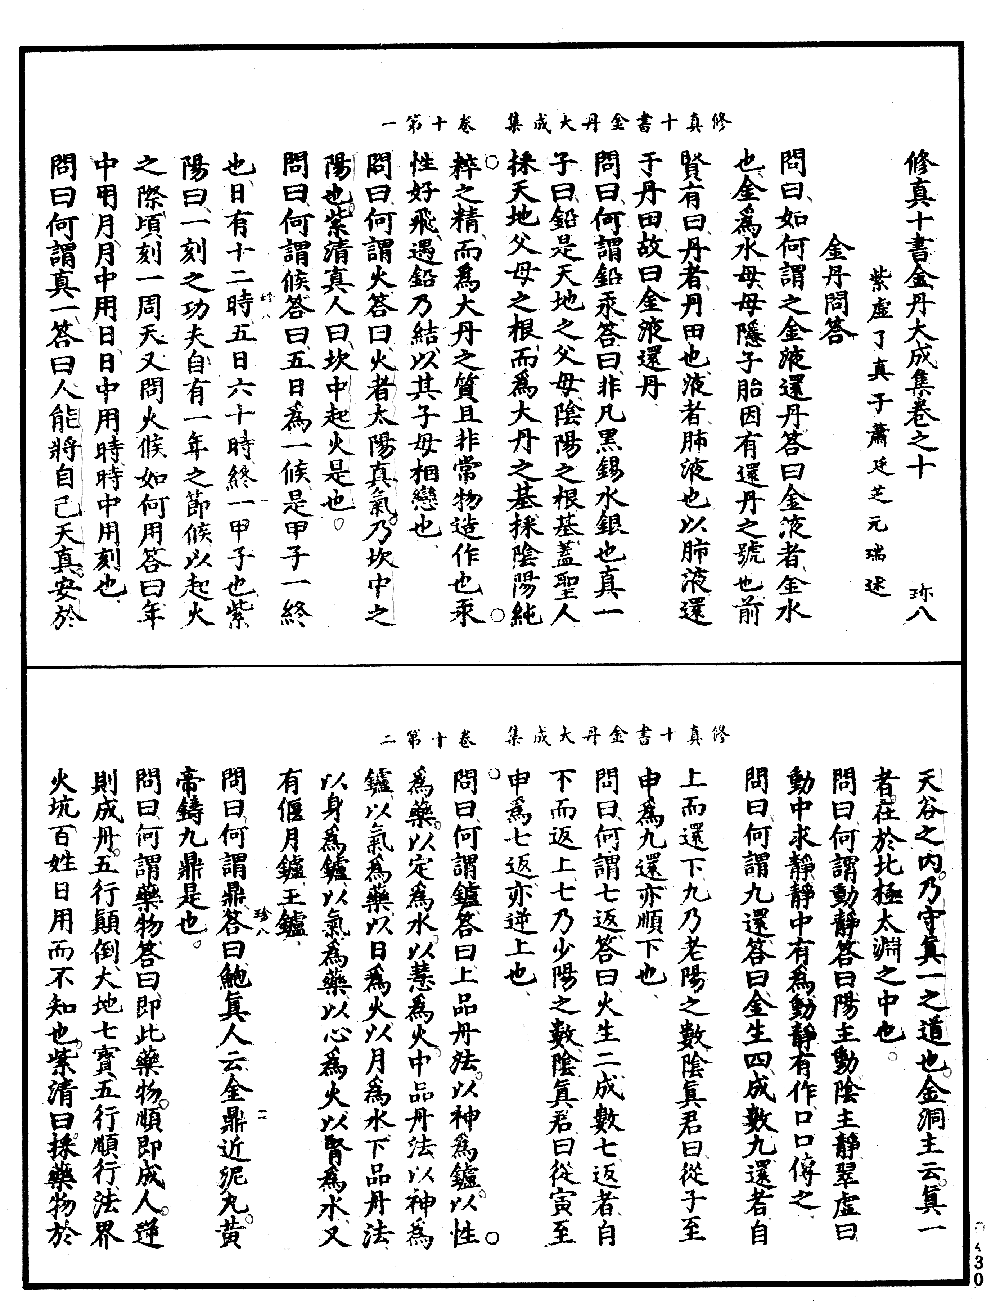 修真十書金丹大成集　卷十第一
修真十書金丹大成集卷之十　珎八
紫虛了真子蕭廷芝元瑞述
金丹問答
問曰如何謂之金液還丹答曰金液者金水
也金爲水母母隱子胎因有還丹之號也前
賢有曰丹者丹田也液者肺液也以肺液還
于丹田故曰金液還丹
問曰何謂鉛汞答曰非凡黑錫水銀也真一
子曰鉛是天地之父母陰陽之根基蓋聖人
採天地父母之根而爲大丹之基採陰陽純
粹之精而爲大丹之質且非常物造作也汞
性好飛遇鉛乃結以其子母相戀也
問曰何謂火答曰火者太陽真氣乃坎中之
陽也紫清真人曰坎中起火是也
問曰何謂候答曰五日爲一候是甲子一終
也日有十二時五日六十時終一甲子也紫
陽曰一刻之功夫自有一年之節候以起火
之際頃刻一周天又問火候如何用答曰年
中用月月中用日日中用時時中用刻也
問曰何謂真一答曰人能將自己天真安於
修真十書金丹大成集　卷十第二
天谷之內乃守真一之道也金洞主云真一
者在於北極太淵之中也
問曰何謂動靜答曰陽主動陰主靜翠虛曰
動中求靜靜中有爲動靜有作口口傳之
問曰何謂九還答曰金生四成數九還者自
上而還下九乃老陽之數陰真君曰從子至
申爲九還亦順下也
問曰何謂七返答曰火生二成數七返者自
下而返上七乃少陽之數陰真君曰從寅至
申爲七返亦逆上也
問曰何謂鑪答曰上品丹法以神爲鑪以性
爲藥以定爲水以慧爲火中品丹法以神爲
鑪以氣爲藥以日爲火以月爲水下品丹法
以身爲鑪以氣爲藥以心爲火以腎爲水又
有偃月鑪玉鑪
珎八　二
問曰何謂鼎答曰鮑真人云金鼎近泥丸黄
帝鑄九鼎是也
問曰何謂藥物答曰即此藥物順即成人逆
則成丹五行顛倒大地七寶五行順行法界
火坑百姓日用而不知也紫清曰採藥物於